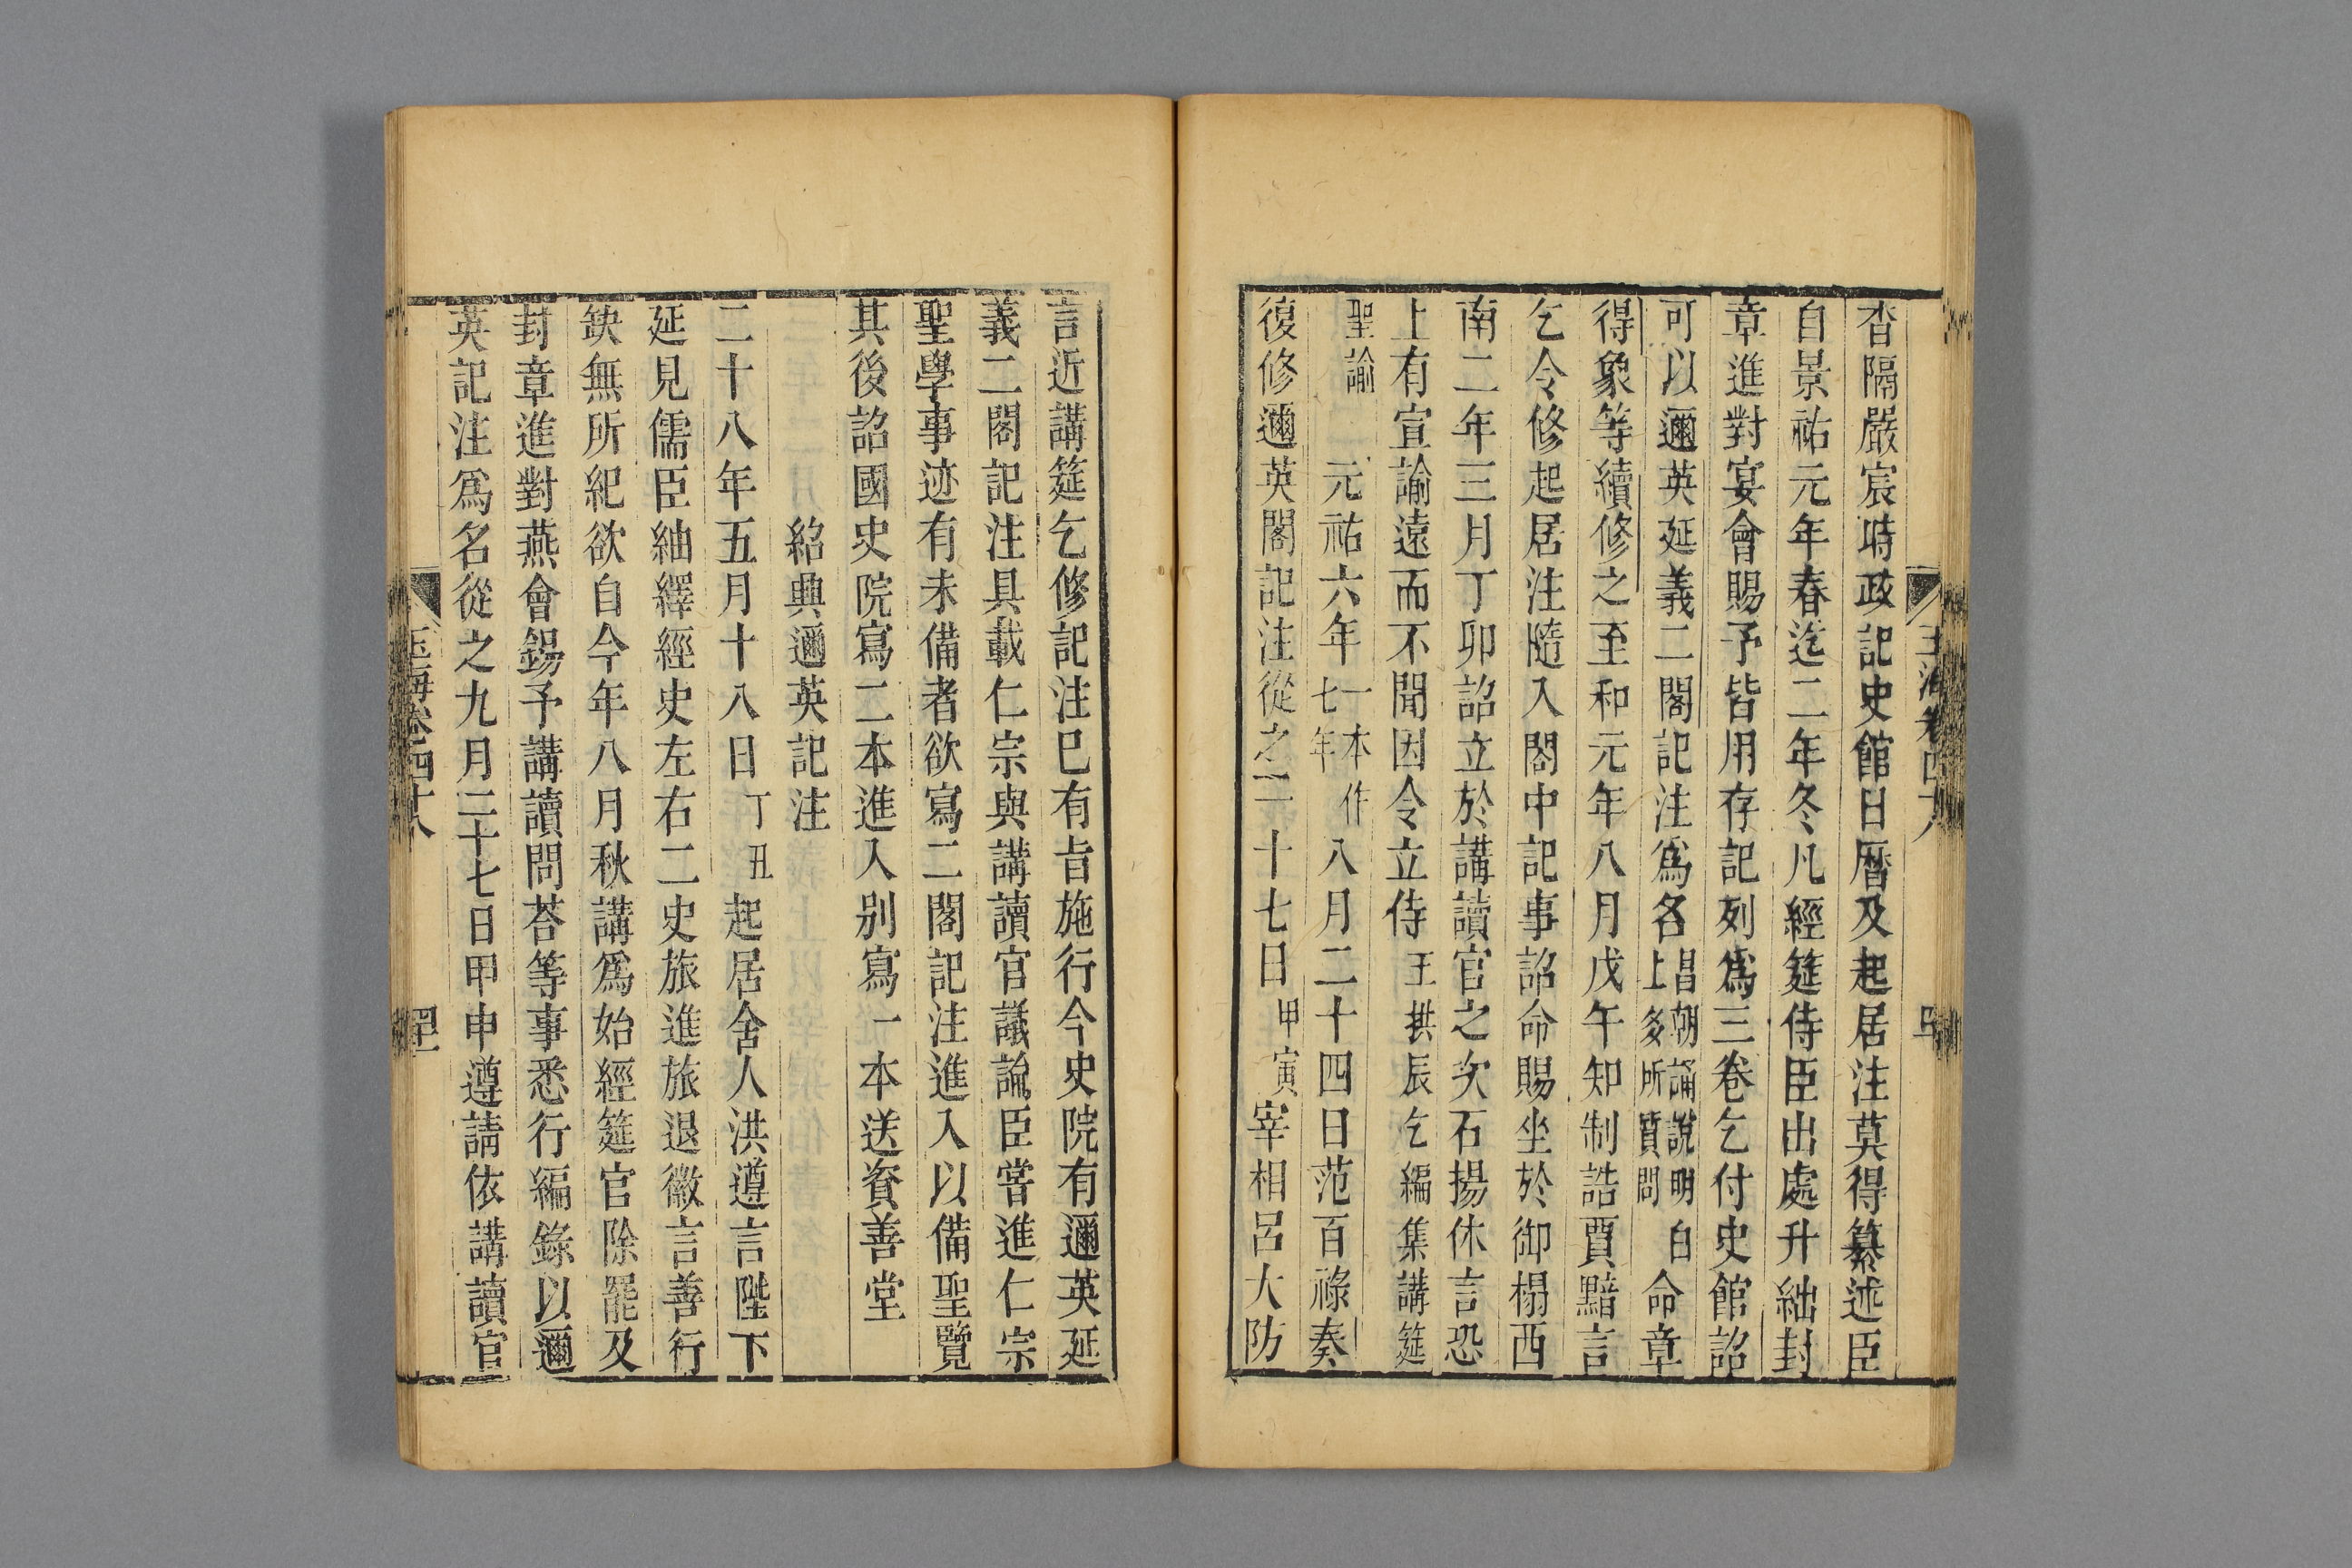 杳隔嚴宸時政記史館日曆及起居注莫得纂述臣
自景祐元年春迄二年冬凡經筵侍臣出處升絀封
章進對宴會賜予皆用存記列爲三卷乞付史館詔
可以邇英延義二閣記注爲名昌朝誦說明白上多所質問命章
得象等續修之至和元年八月戊午知制誥賈黯言
乞令修起居注隨入閣中記事詔命賜坐於御榻西
南二年三月丁卯詔立於講讀官之次石揚休言恐
上有宣諭遠而不聞因令立侍王拱辰乞編集講筵
聖諭元祐六年一本作七年八月二十四日范百祿奏
復修邇英閣記注從之二十七日甲寅宰相呂大防
言近講筵乞修記注已有旨施行今史院有邇英延
義二閣記注具載仁宗與講讀官議論臣嘗進仁宗
聖學事迹有未備者欲寫二閣記注進入以備聖覽
其後詔國史院寫二本進入別寫一本送資善堂
紹興邇英記注
二十八年五月十八日丁丑起居舍人洪遵言陛下
延見儒臣紬繹經史左右二史旅進旅退徽言善行
缺無所紀欲自今年八月秋講爲始經筵官除罷及
封章進對燕會錫予講讀問荅等事悉行編錄以邇
英記注爲名從之九月二十七日甲申遵請依講讀官
玉海卷四十八